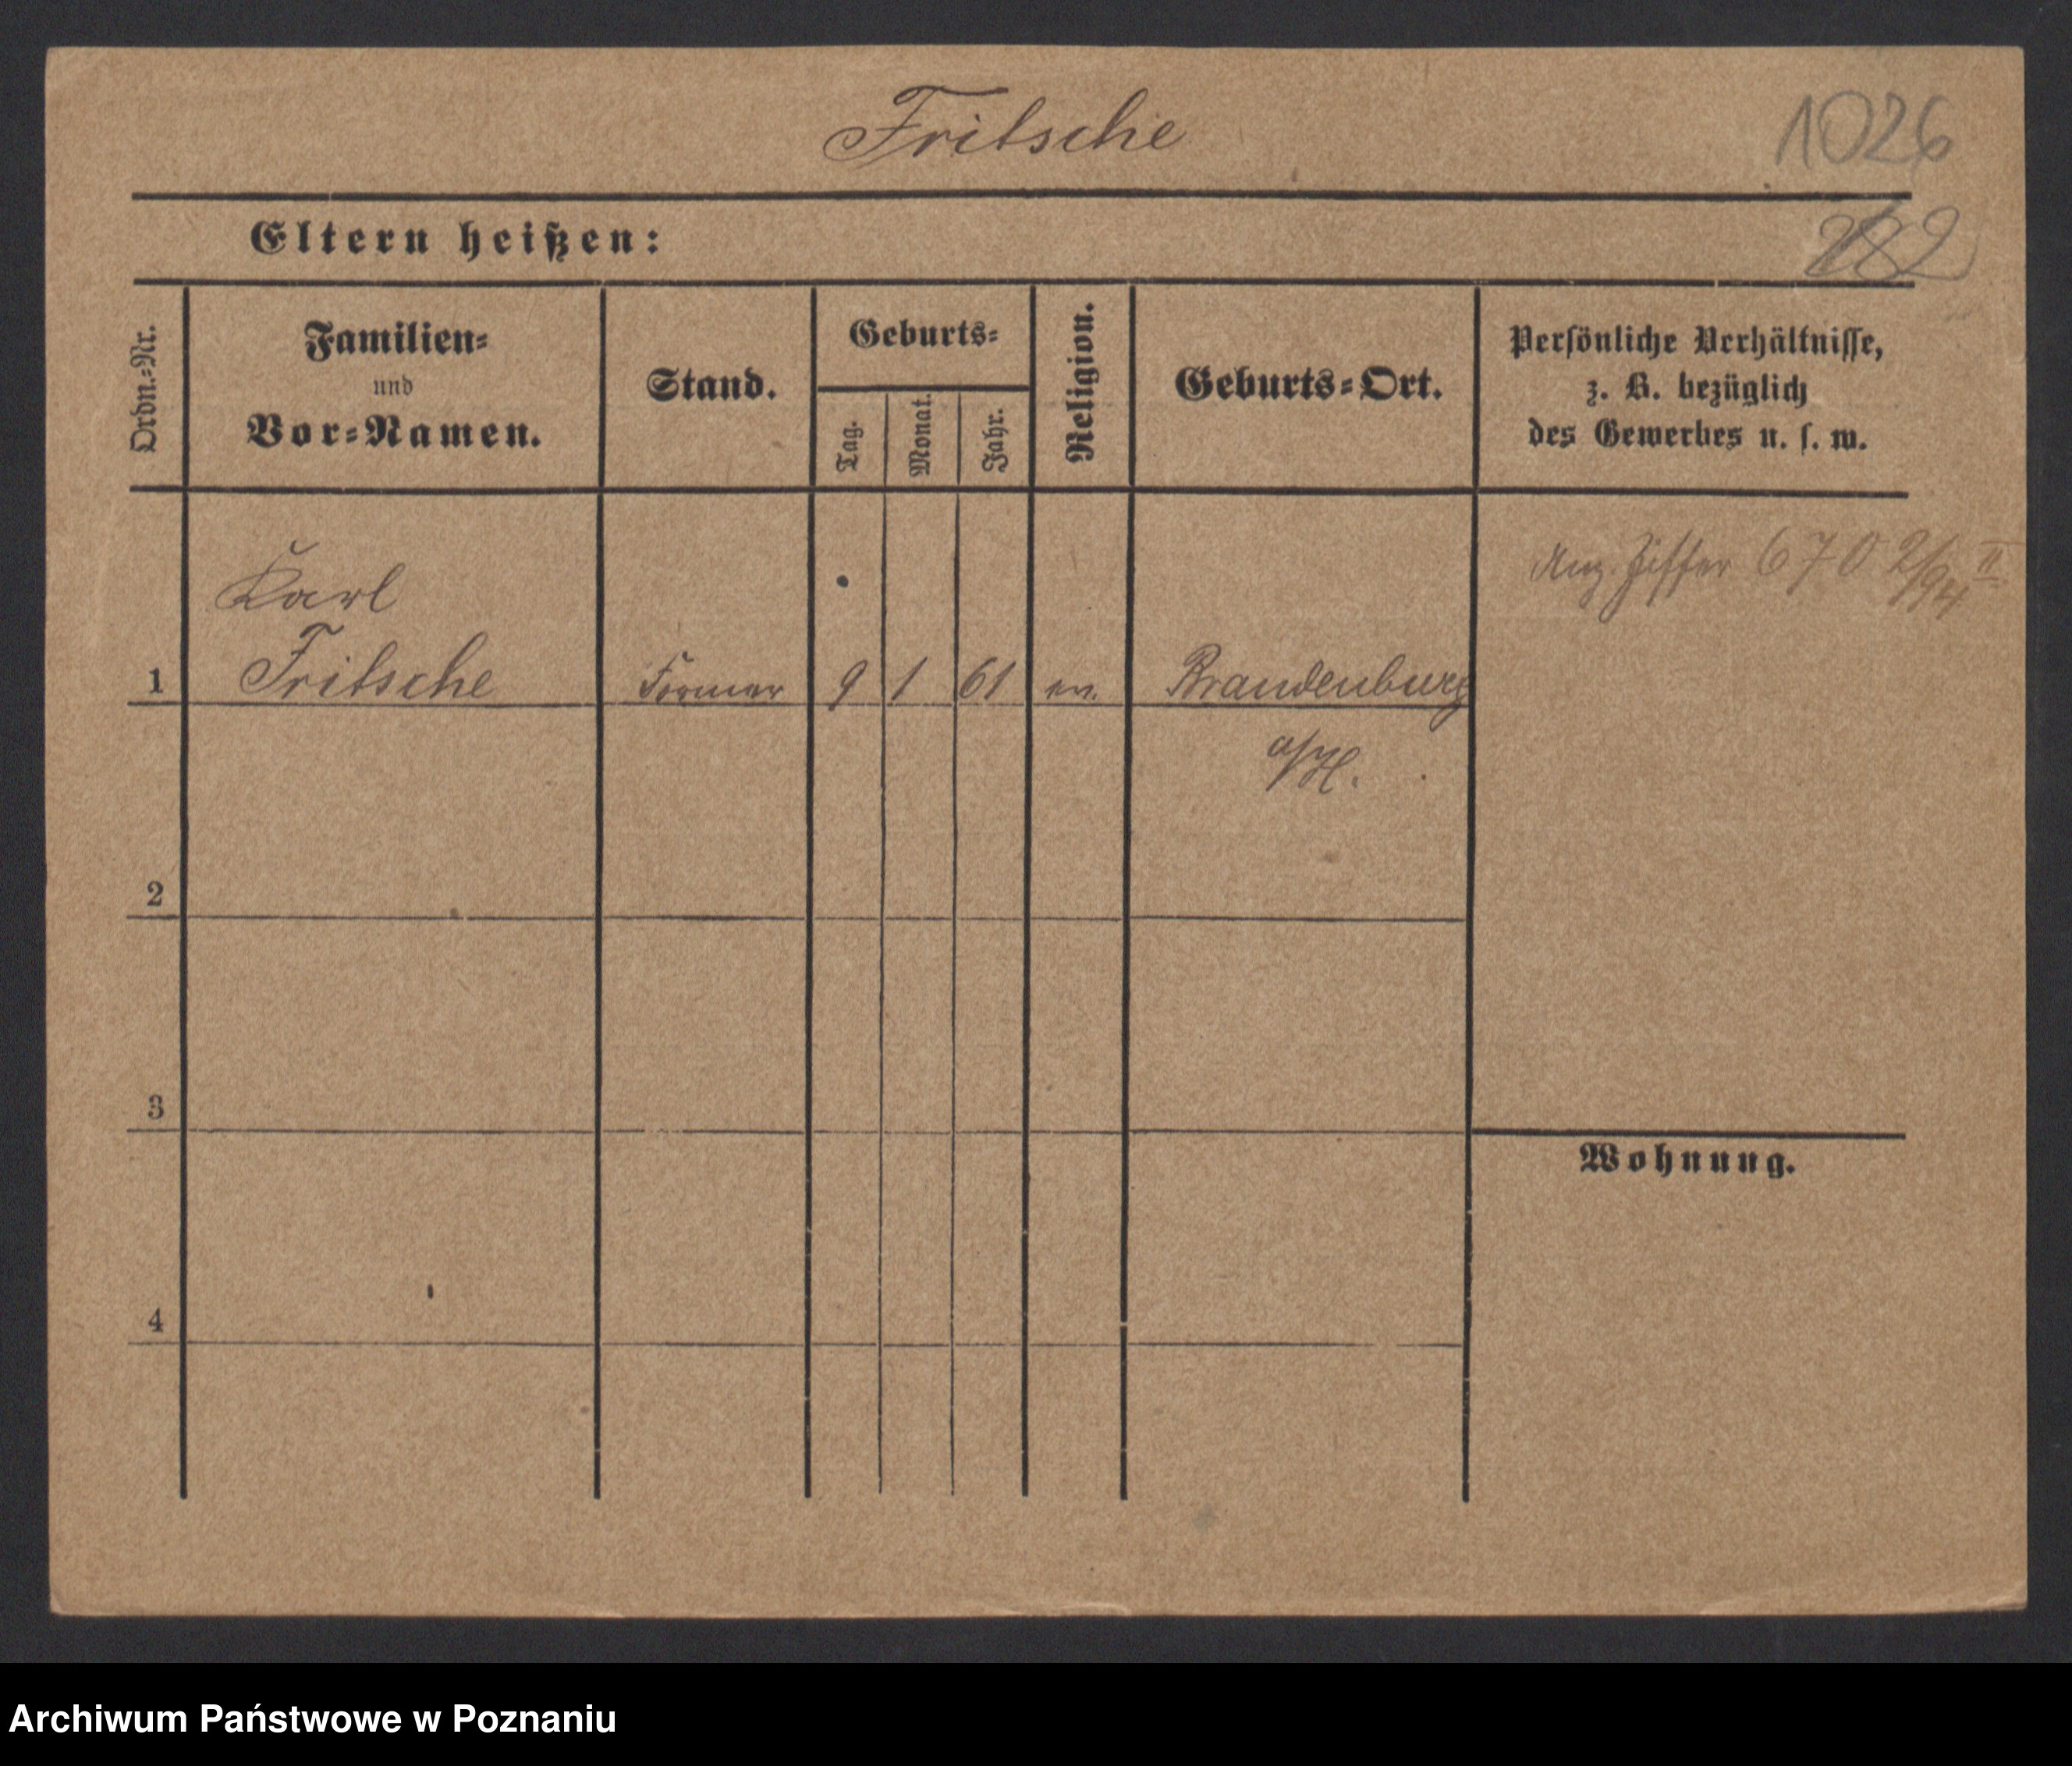 Fritsche
1026
282
Eltern heißen:
Ordn.-Nr.
Familien-
und
Vor-Namen.
Stand.
Geburts-
Tag.
Monat.
Jahr.
Religion.
Geburts-Ort.
Persönliche Verhältnisse,
z. B. bezüglich
des Gewerbes u. s. w.
Anz. Ziffer 670 2/94 II
Karl
1 Fritsche Former 9 1 61 ev. Brandenburg
a/H.
2
3
Wohnung.
4
Archiwum Państwowe w Poznaniu